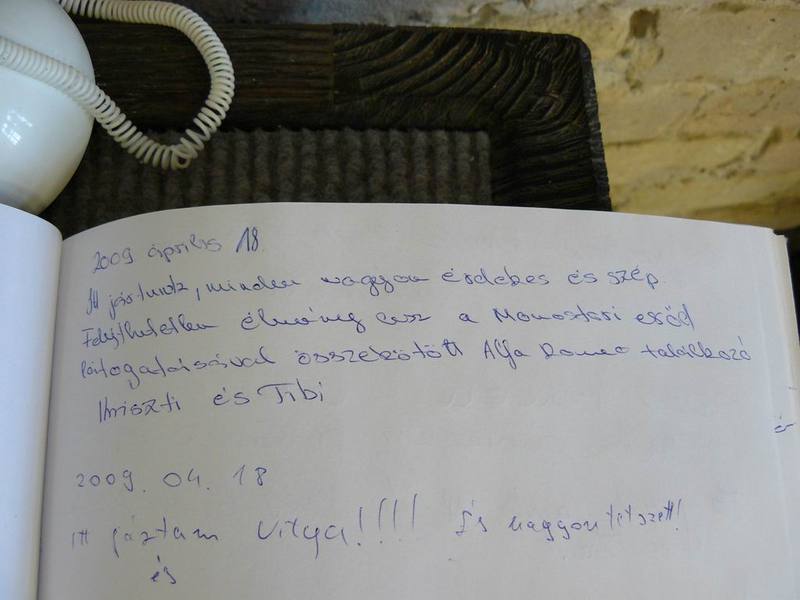 2009 április 18.
Itt jártunk, minden nagyon érdekes és szép.
Felejthetetlen élmény lesz a Monostori erőd
látogatásával összekötött Alfa Romeo találkozó
Kriszti és Tibi
2009. 04. 18
Itt jáztam !!!! És nagyon tetszett!
és